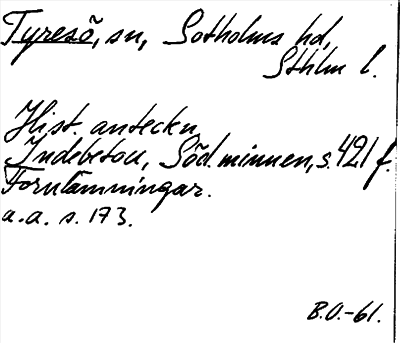 Tyresö, sn, Sotholms hd,
Sthlm l.
Hist. anteckn.
Indebetou, Söd. minnen, s. 421 f.
Fornlämningar.
a.a. s. 173.
B.O.-61.